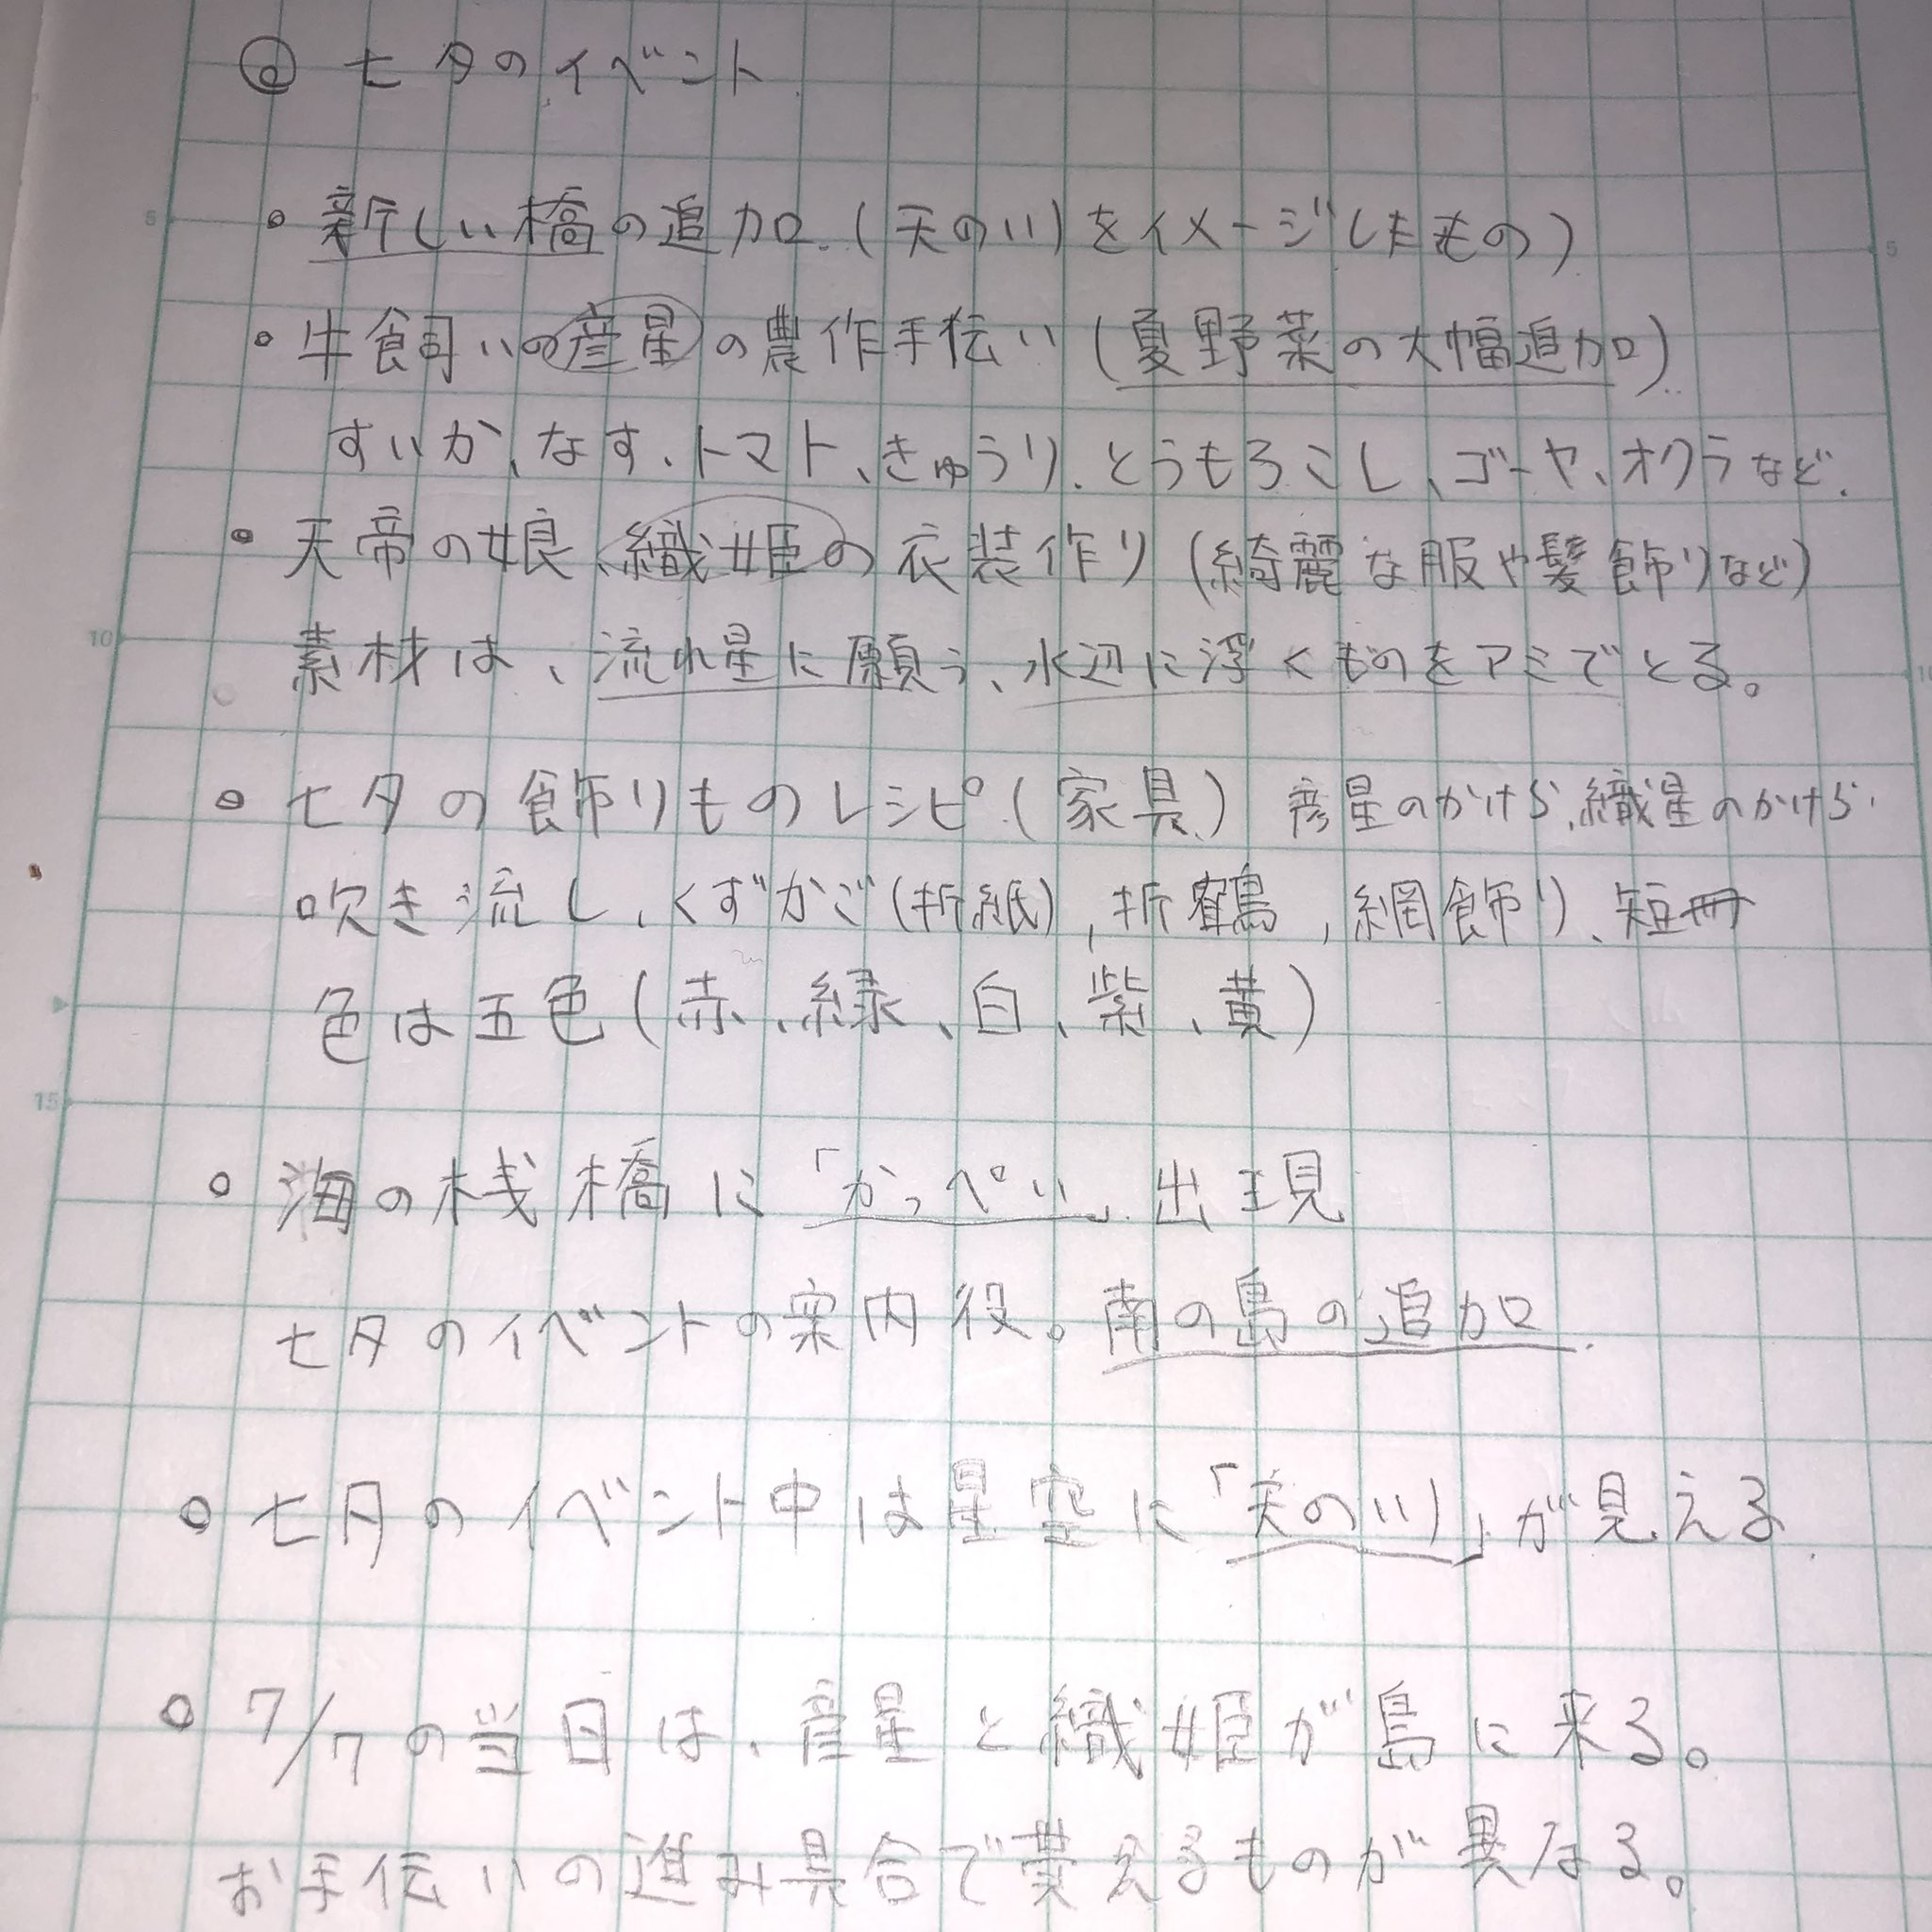 ◎ 七夕のイベント
・新しい橋の追加.(天の川)をイメージしたもの)
・牛飼いの彦星の農作手伝い(夏野菜の大幅追加)
すいか、なす、トマト、きゅうり、とうもろこし、ゴーヤ、オクラなど.
・天帝の娘、織姫の衣装作り(綺麗な服や髪飾りなど)
素材は、流れ星に願う、水辺に浮くものをアミでとる。
・七夕の飾りものレシピ(家具) 彦星のかけら、織星のかけら
吹き流し、くずかご(折紙), 折鶴, 網飾り、短冊
色は五色(赤、緑、白、紫、黄)
・海の桟橋に「かっぺい」出現
七夕のイベントの案内役。南の島の追加.
・七月のイベント中は星空に「天の川」が見える
・7/7の当日は、彦星と織姫が島に来る。
お手伝いの進み具合で貰えるものが異なる。
5
10
15
5
10